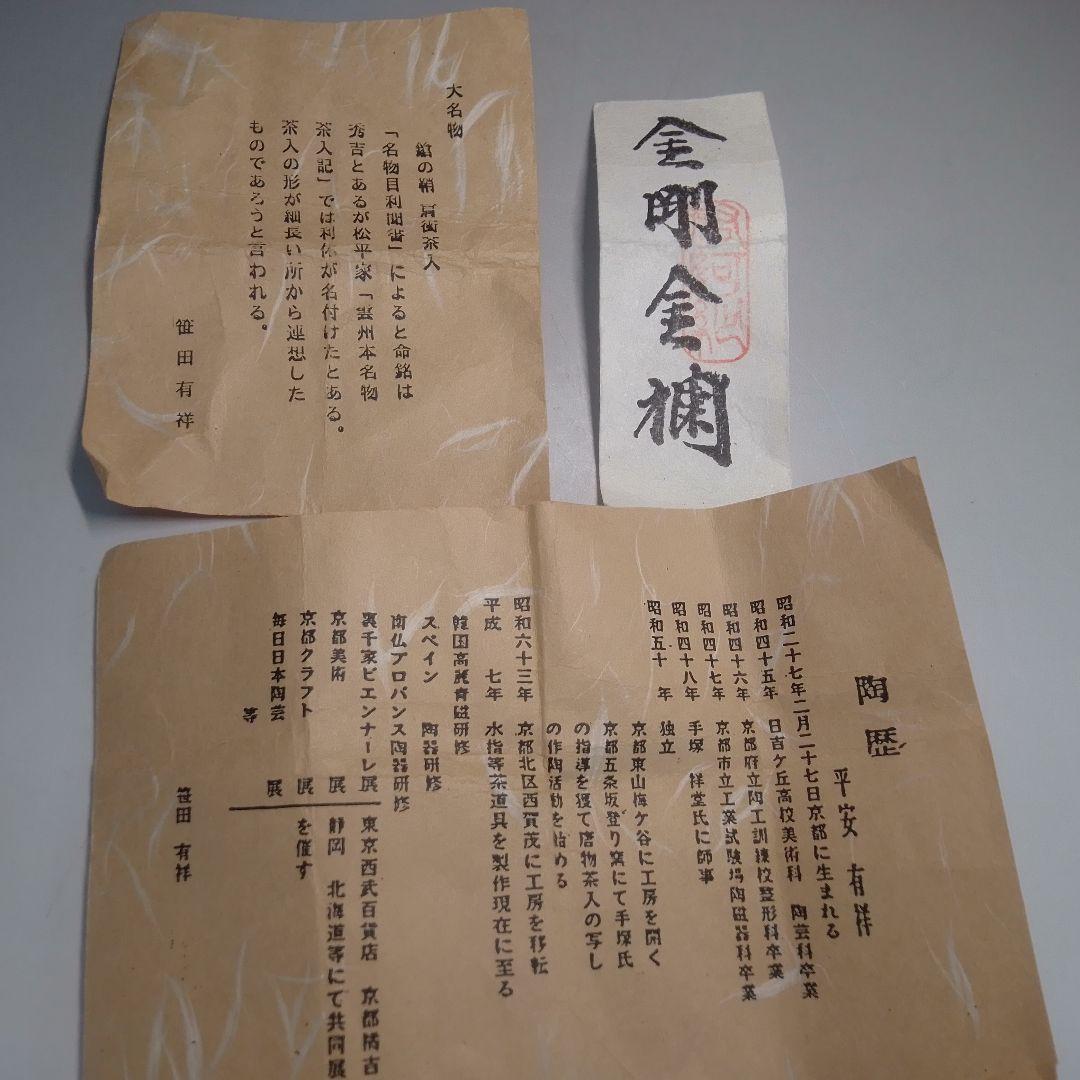 大名物
鎗の鞘 肩衝茶入
「名物目利聞書」によると命銘は
秀吉とあるが松平家「雲州本名物
茶入記」では利休が名付けたとある。
茶入の形が細長い所から連想した
ものであろうと言われる。
笹田有祥
金剛金襴
陶歴
平安 有祥
昭和二十七年二月二十七日京都に生まれる
昭和四十五年 日吉ケ丘高校美術科 陶芸科卒業
昭和四十六年 京都府立陶工訓練校整形科卒業
昭和四十七年 京都市立工業試験場陶磁器科卒業
昭和四十八年 手塚 祥堂氏に師事
昭和五十 年 独立
京都東山梅ケ谷に工房を開く
京都五条坂登り窯にて手塚氏
の指導を獲て唐物茶入の写し
の作陶活動を始める
昭和六十三年 京都北区西賀茂に工房を移転
平成 七年 水指等茶道具を製作現在に至る
韓国高麗青磁研修
スペイン 陶器研修
南仏プロバンス陶器研修
裏千家ビエンナーレ展 東京西武百貨店 京都橘吉
京都美術 展 静岡 北海道等にて共同展
京都クラフト 展 を催す
毎日日本陶芸 展
等
笹田 有祥